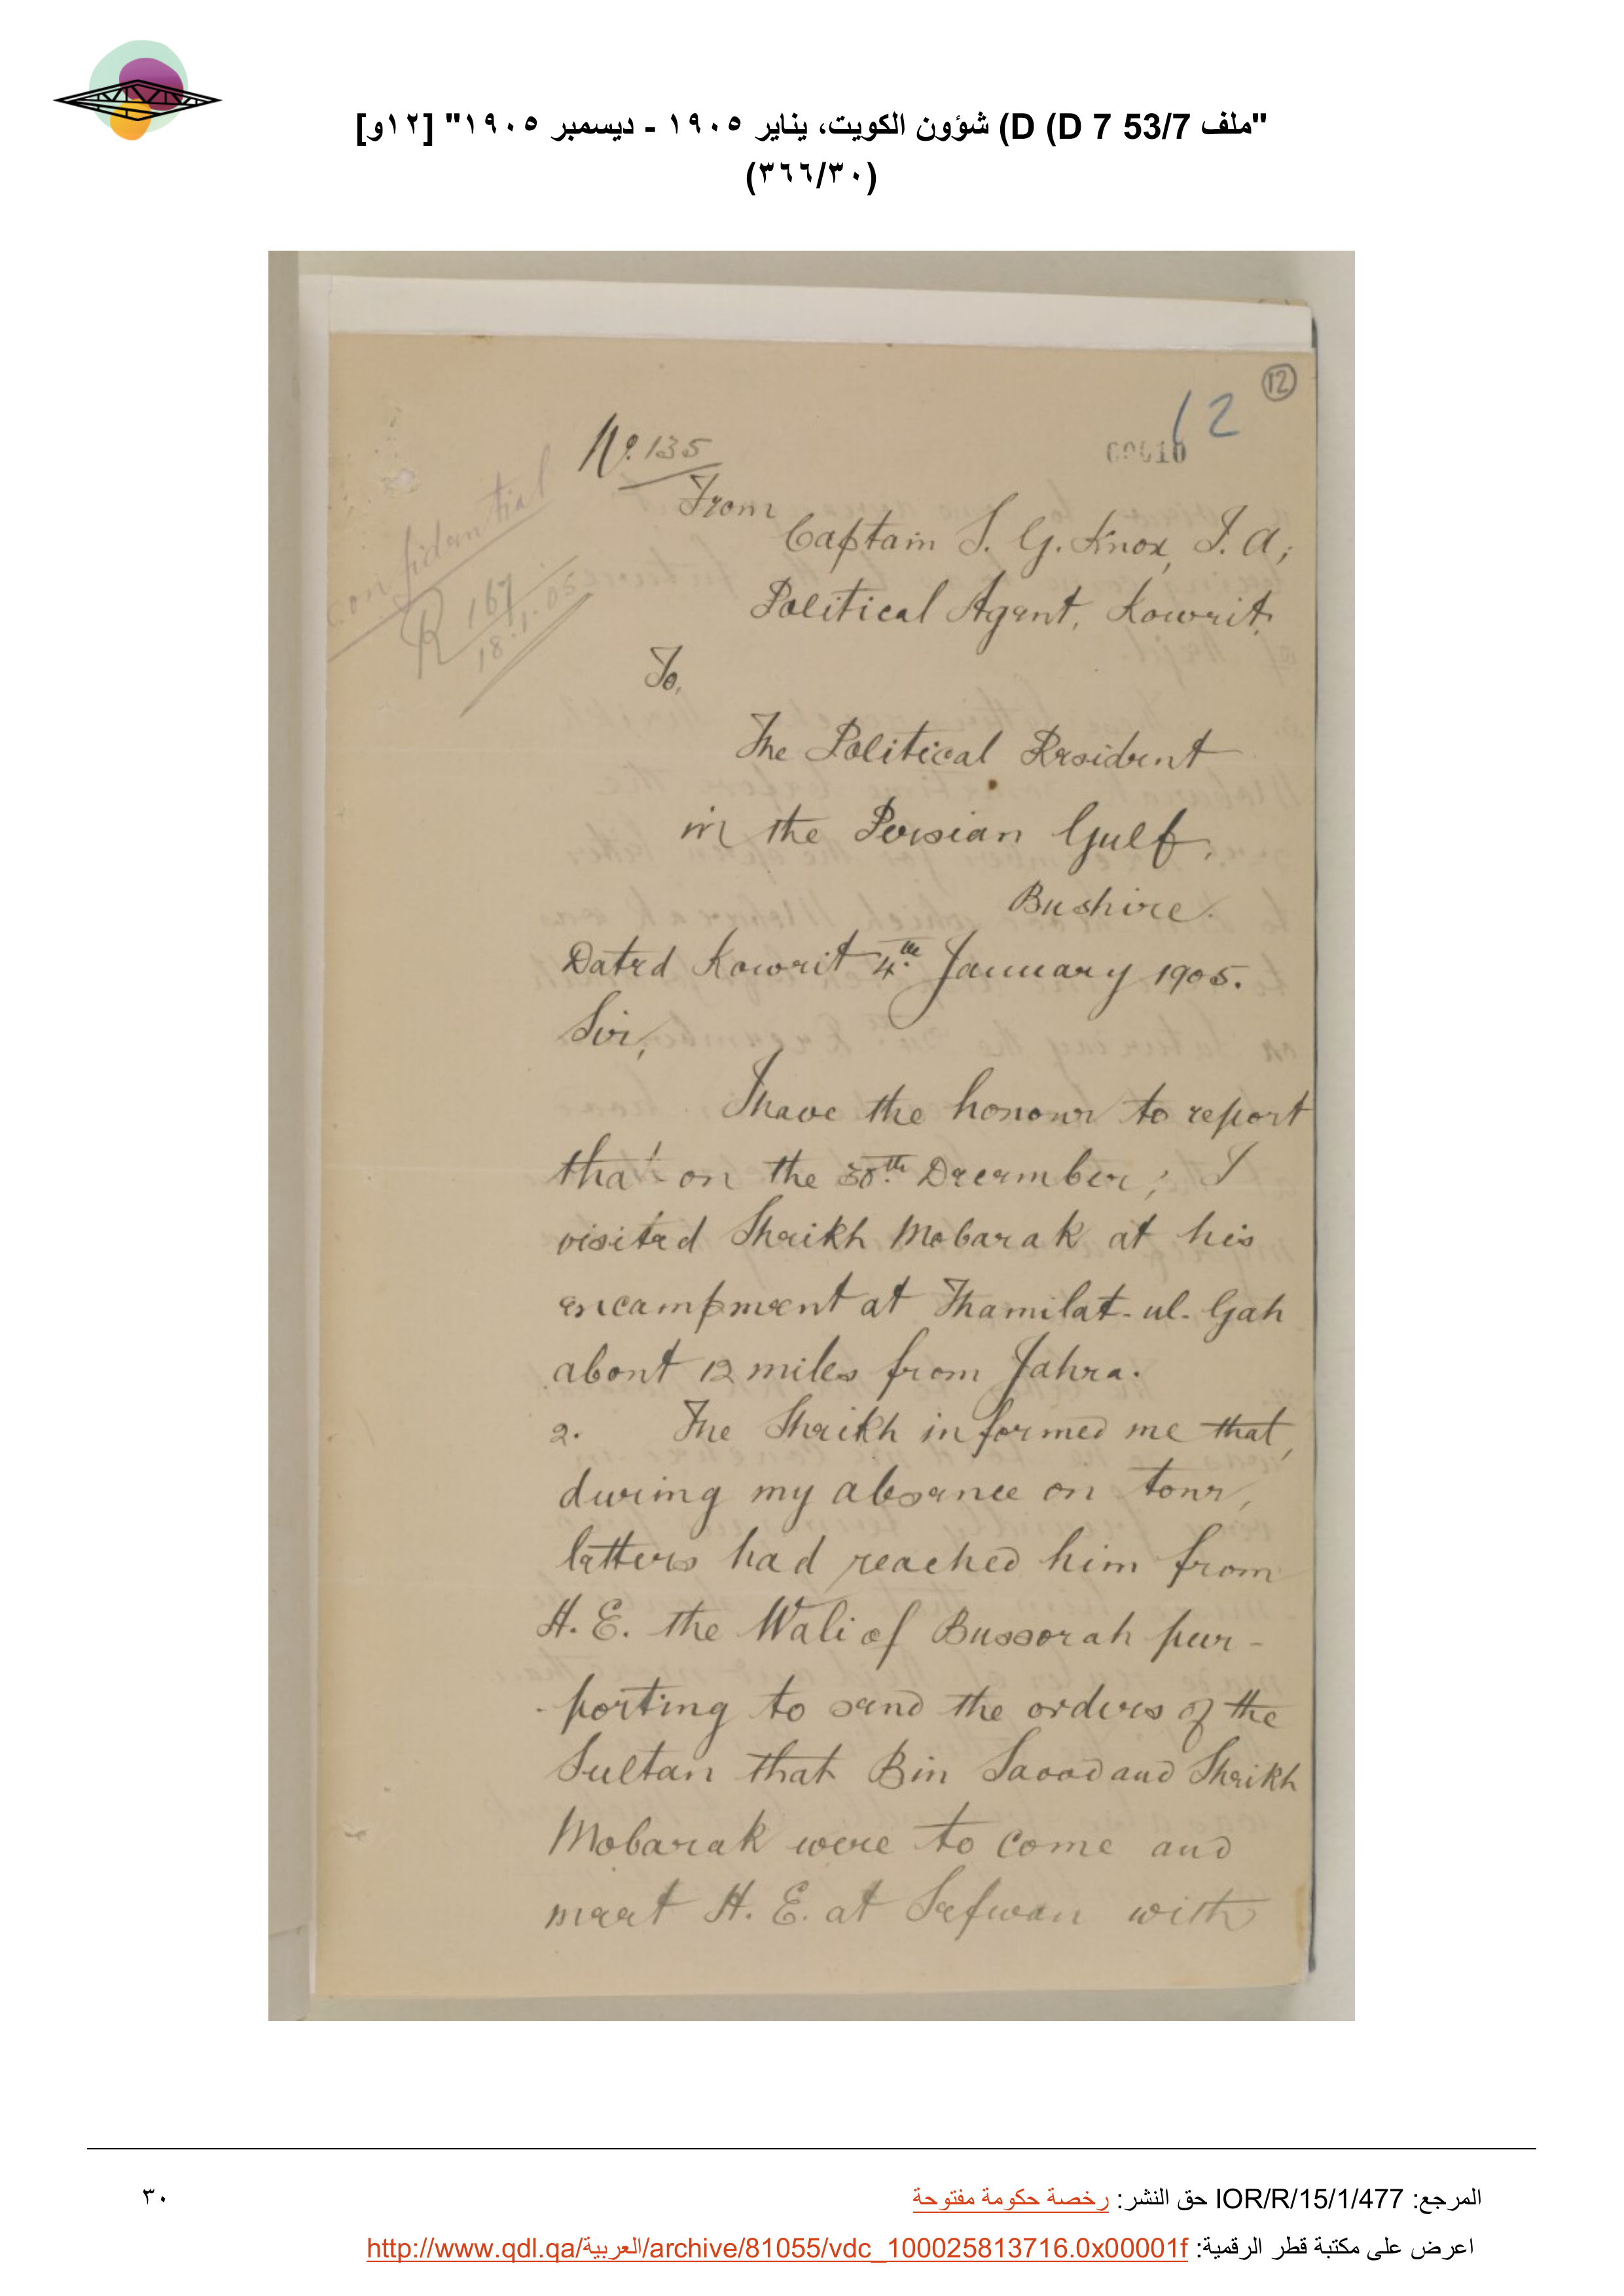 "ملف 53/7 D 7) D) شؤون الكويت، يناير ١٩٠٥ - ديسمبر ١٩٠٥" [١٢و]
(٣٦٦/٣٠)
12
12
No. 135
Confidential
R 167
18.1.05
From
Captain S. G. Knox, I. A;
Political Agent, Koweit.
To,
The Political Resident
in the Persian Gulf,
Bushire.
Dated Koweit 4th January 1905.
Sir,
I have the honour to report
that on the 30th December; I
visited Sheikh Mobarak at his
encampment at Thamilat-ul-Gah
about 12 miles from Jahra.
2. The Sheikh informed me that,
during my absence on tour,
letters had reached him from
H. E. the Wali of Bussorah pur-
-porting to send the orders of the
Sultan that Bin Saood and Sheikh
Mobarak were to come and
meet H. E. at Safwan with
المرجع: IOR/R/15/1/477 حق النشر: رخصة حكومة مفتوحة
٣٠
اعرض على مكتبة قطر الرقمية: http://www.qdl.qa/العربية/archive/81055/vdc_100025813716.0x00001f